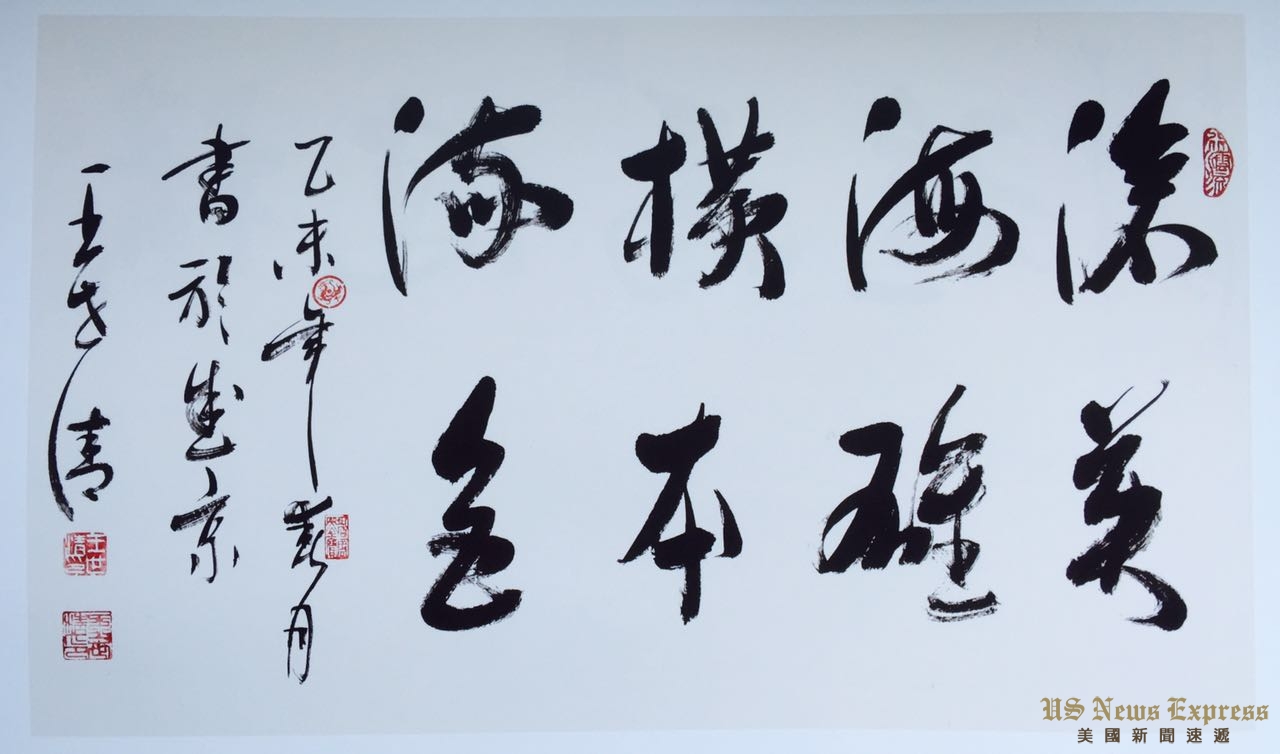 滄海横流
英雄本色
乙未年春月
書於盛京
王世清
US News Express
美國新聞速遞